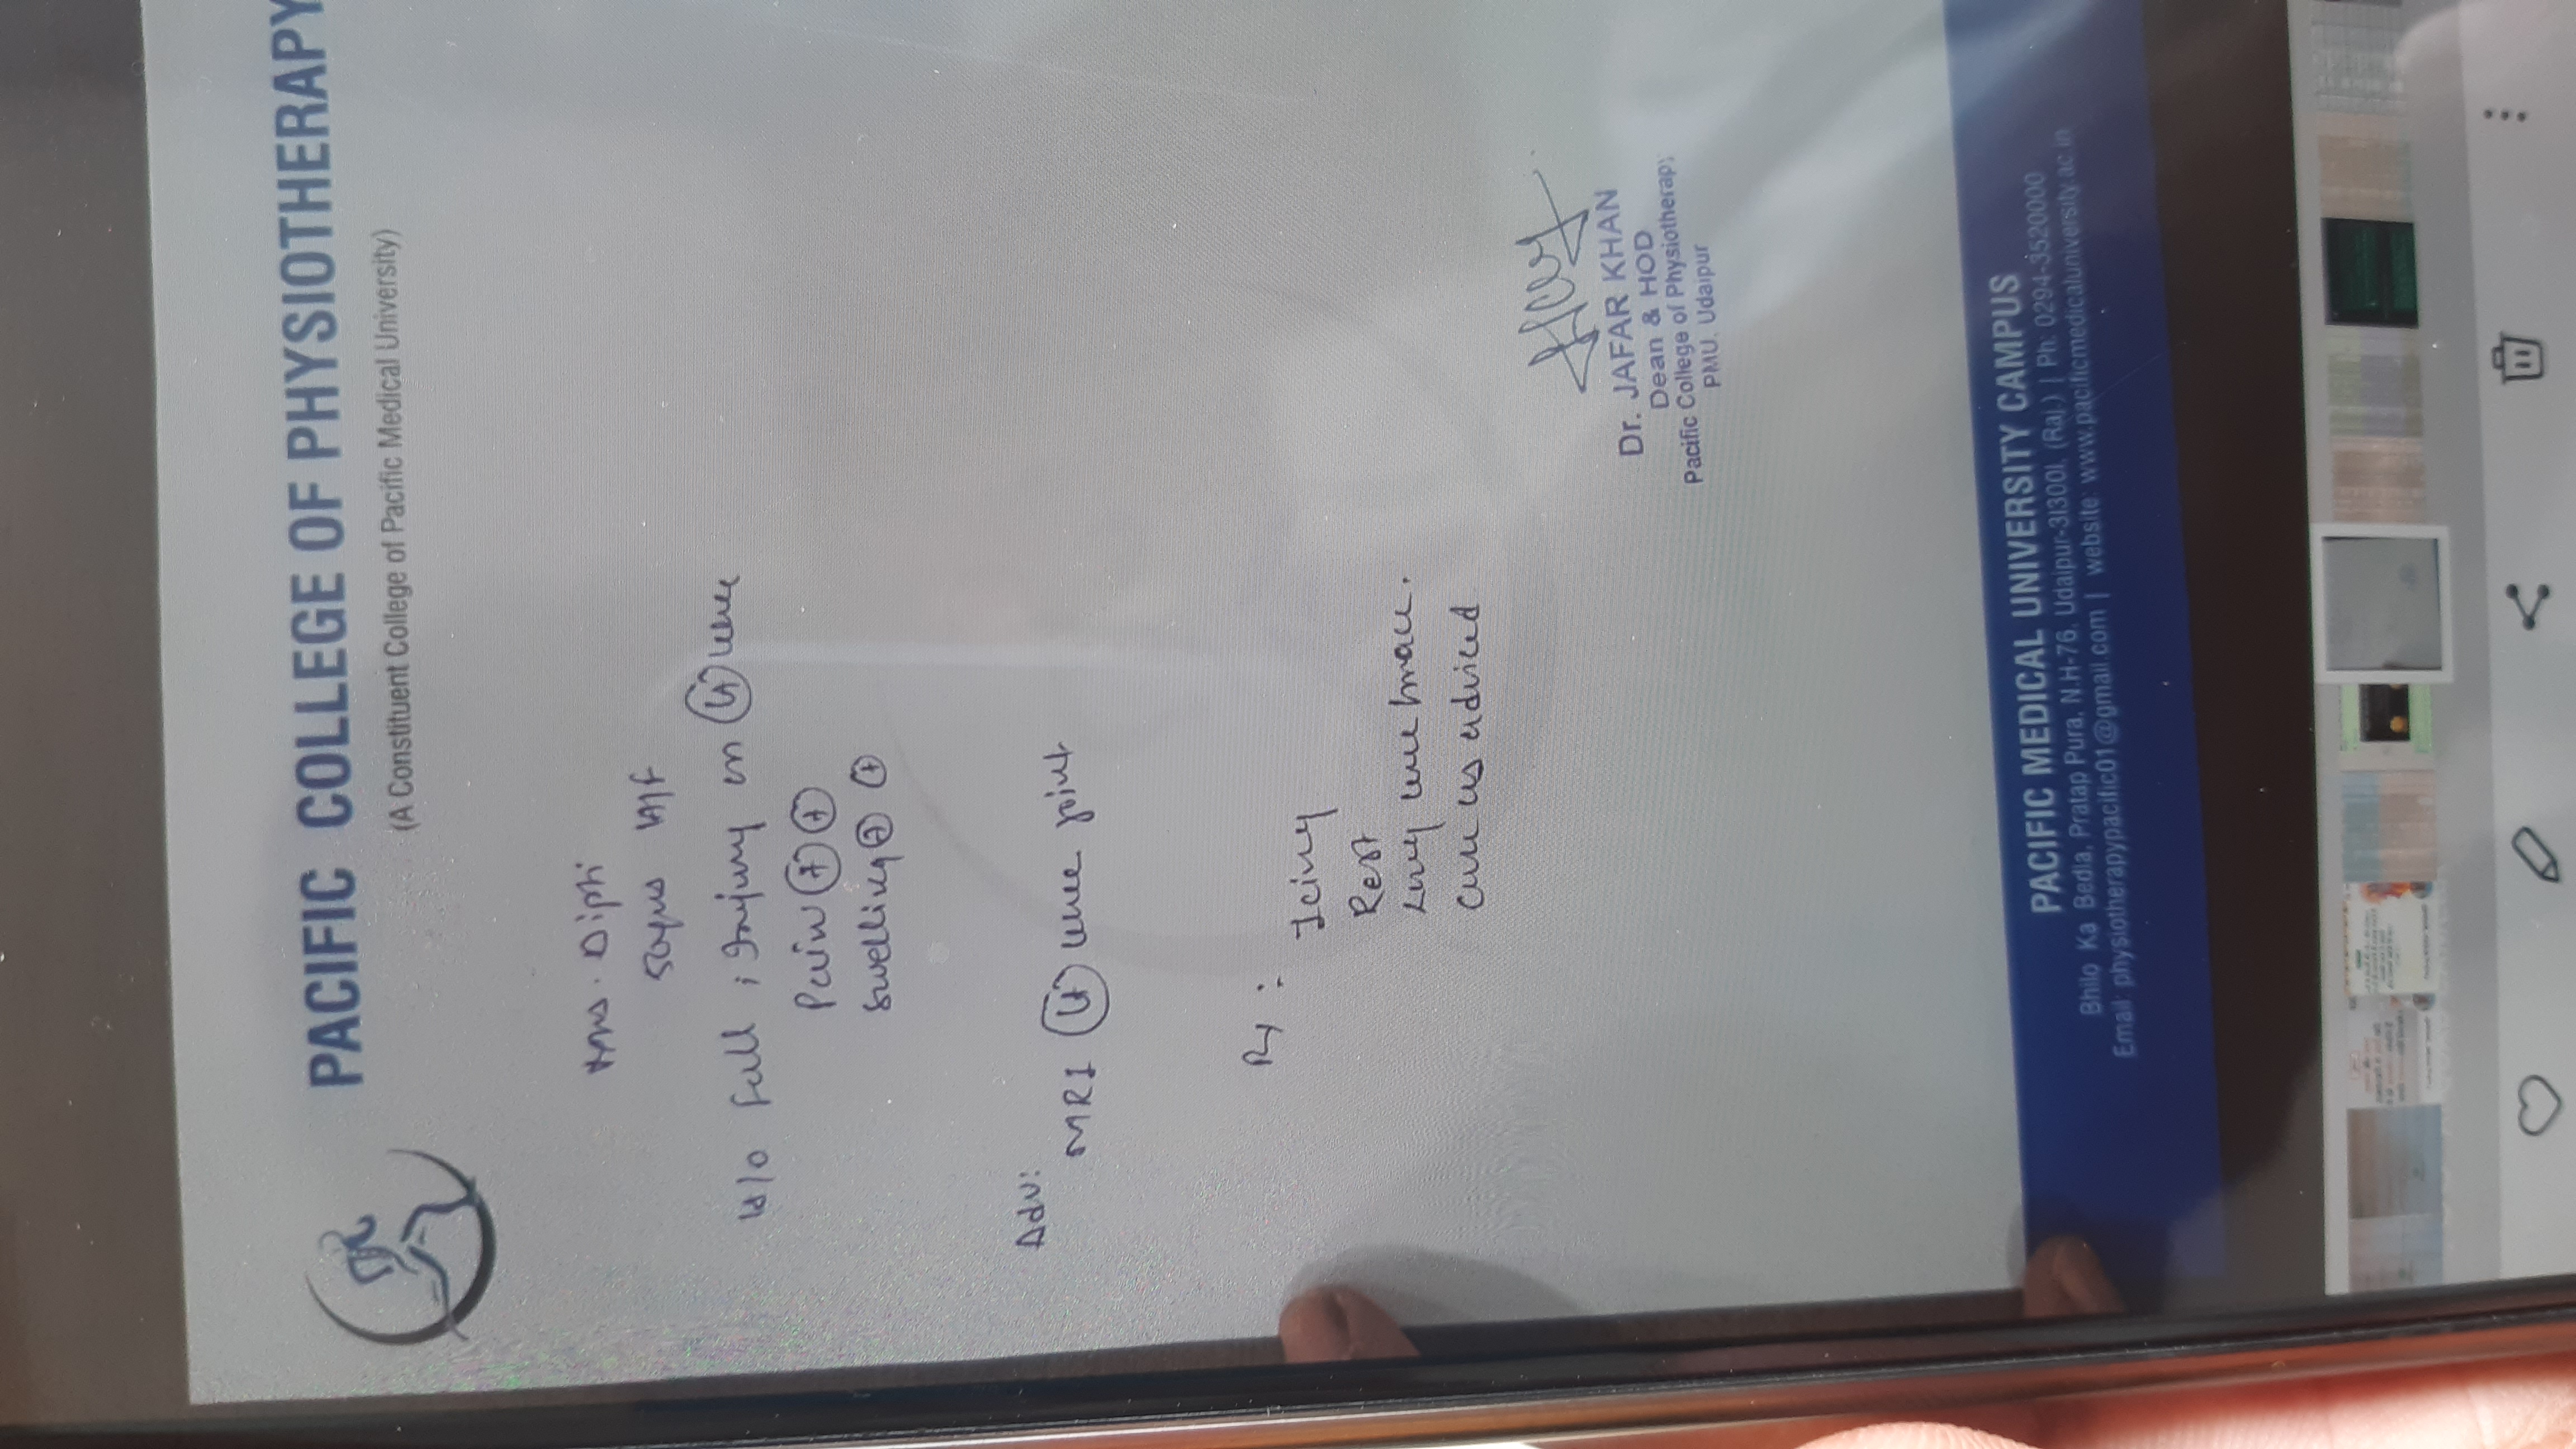 PACIFIC COLLEGE OF PHYSIOTHERAPY
(A Constituent College of Pacific Medical University)
Mrs. Dipti
H/F
H/o Fall ; Injury on Lt knee
Pain + +
Swelling + +
Adv:
MRI Lt knee joint
Rx :
Icing
Rest
Long knee brace.
Care as adviced
Dr. JAFAR KHAN
Dean & HOD
Pacific College of Physiotherapy
PMU, Udaipur
PACIFIC MEDICAL UNIVERSITY CAMPUS
Bhilo Ka Bedla, Pratap Pura, N.H-76, Udaipur-313001, (Raj.) | Ph. 0294-3520000
Email: physiotherapypacific01@gmail.com | website: www.pacificmedicaluniversity.ac.in